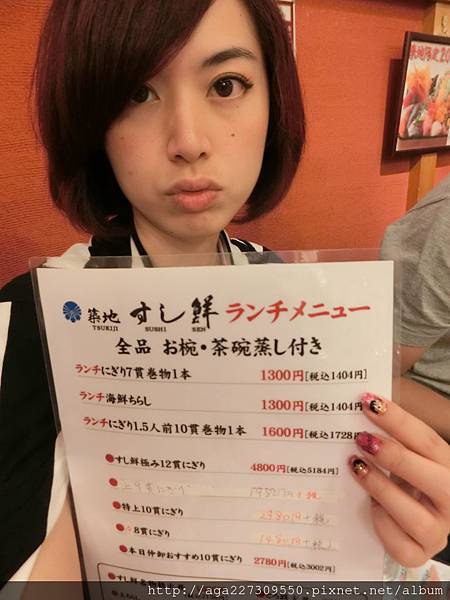 築地限定20
築地 すし鮮 ランチメニュー
TSUKIJI SUSHI SEN
全品 お椀・茶碗蒸し付き
ランチにぎり7貫巻物1本 1300円[税込1404円]
ランチ海鮮ちらし 1300円[税込1404円
ランチにぎり1.5人前10貫巻物1本 1600円[税込1728円
●すし鮮極み12貫にぎり 4800円[税込5184円]
●特上10貫にぎり 2980円+税
8貫にぎり 1480円+税
●本日仲卸おすすめ10貫にぎり 2780円[税込3002円]
http://aga227309550.pixnet.net/album